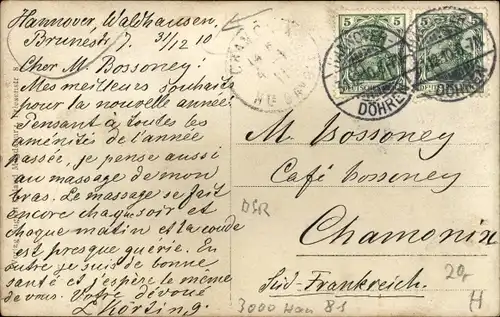 Hannover, Waldhausen,
Brunéstr. 7. 31/12 10
Cher M. Bossoney!
Mes meilleurs souhaits
pour la nouvelle année.
Pensant à toutes les
aménités de l'année
passée, je pense aussi
au massage de mon
bras. Le massage se fait
encore chaque soir et
chaque matin et la coude
est presque guérie. En
outre je suis de bonne
santé et j'espère le même
de vous. Votre dévoué
L. Hörting.
5 5
5 5
HANNOVER
DÖHREN
HANNOVER
DÖHREN
M. Bossoney
Café Bossoney
Chamonix
Süd-Frankreich.
DSR
20,-
3000 Han 81
H